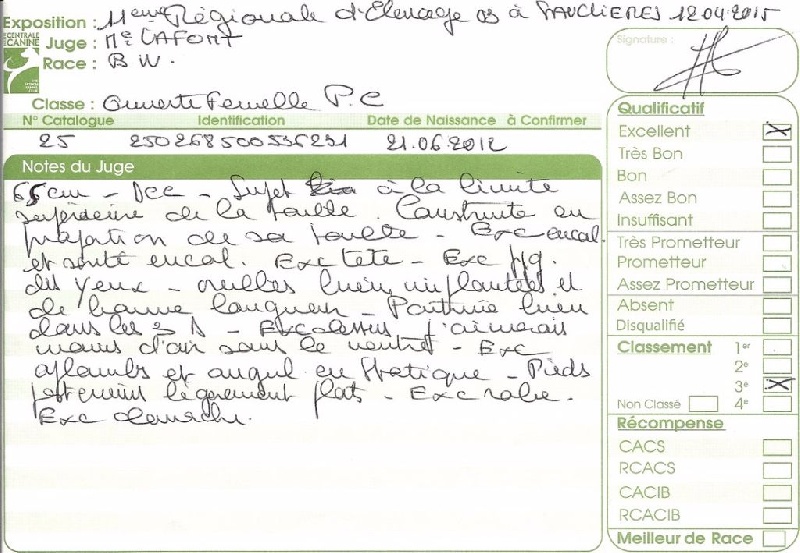 Exposition : 11eme Régionale d'Elevage 03 à VAUCLIERES 12.04.2015
CENTRALE CANINE
Juge : Me LAFONT
Race : B W.
Classe : Ouverte Femelle P.C
N° Catalogue Identification Date de Naissance à Confirmer
25 250268500536231 21.06.2012
Signature :
Notes du Juge
65cm - Dcc - Sujet à la limite
supérieure de la taille. Construite en
proportion de sa taille - Exc encol.
et sortie encol. Exc tete - Exc pig.
des yeux - oreilles bien implantées et
de bonne longueur - Poitrine bien
dans les 3 D - Exc dessus j'aimerais
moins d'air sous le ventre - Exc
aplombs et angul en statique - Pieds
légèrement plats - Exc robe.
Exc démarche.
Qualificatif
Excellent
Très Bon
Bon
Assez Bon
Insuffisant
Très Prometteur
Prometteur
Assez Prometteur
Absent
Disqualifié
Classement 1er
2e
3e
Non Classé 4e
Récompense
CACS
RCACS
CACIB
RCACIB
Meilleur de Race